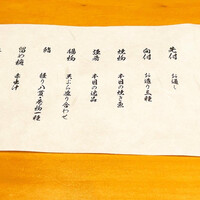 先付 お通し
向付 お造り三種
焼物 本日の焼き魚
強肴 本日の逸品
揚物 天ぷら盛り合わせ
鮨 握り八貫巻物一種
留め椀 赤出汁